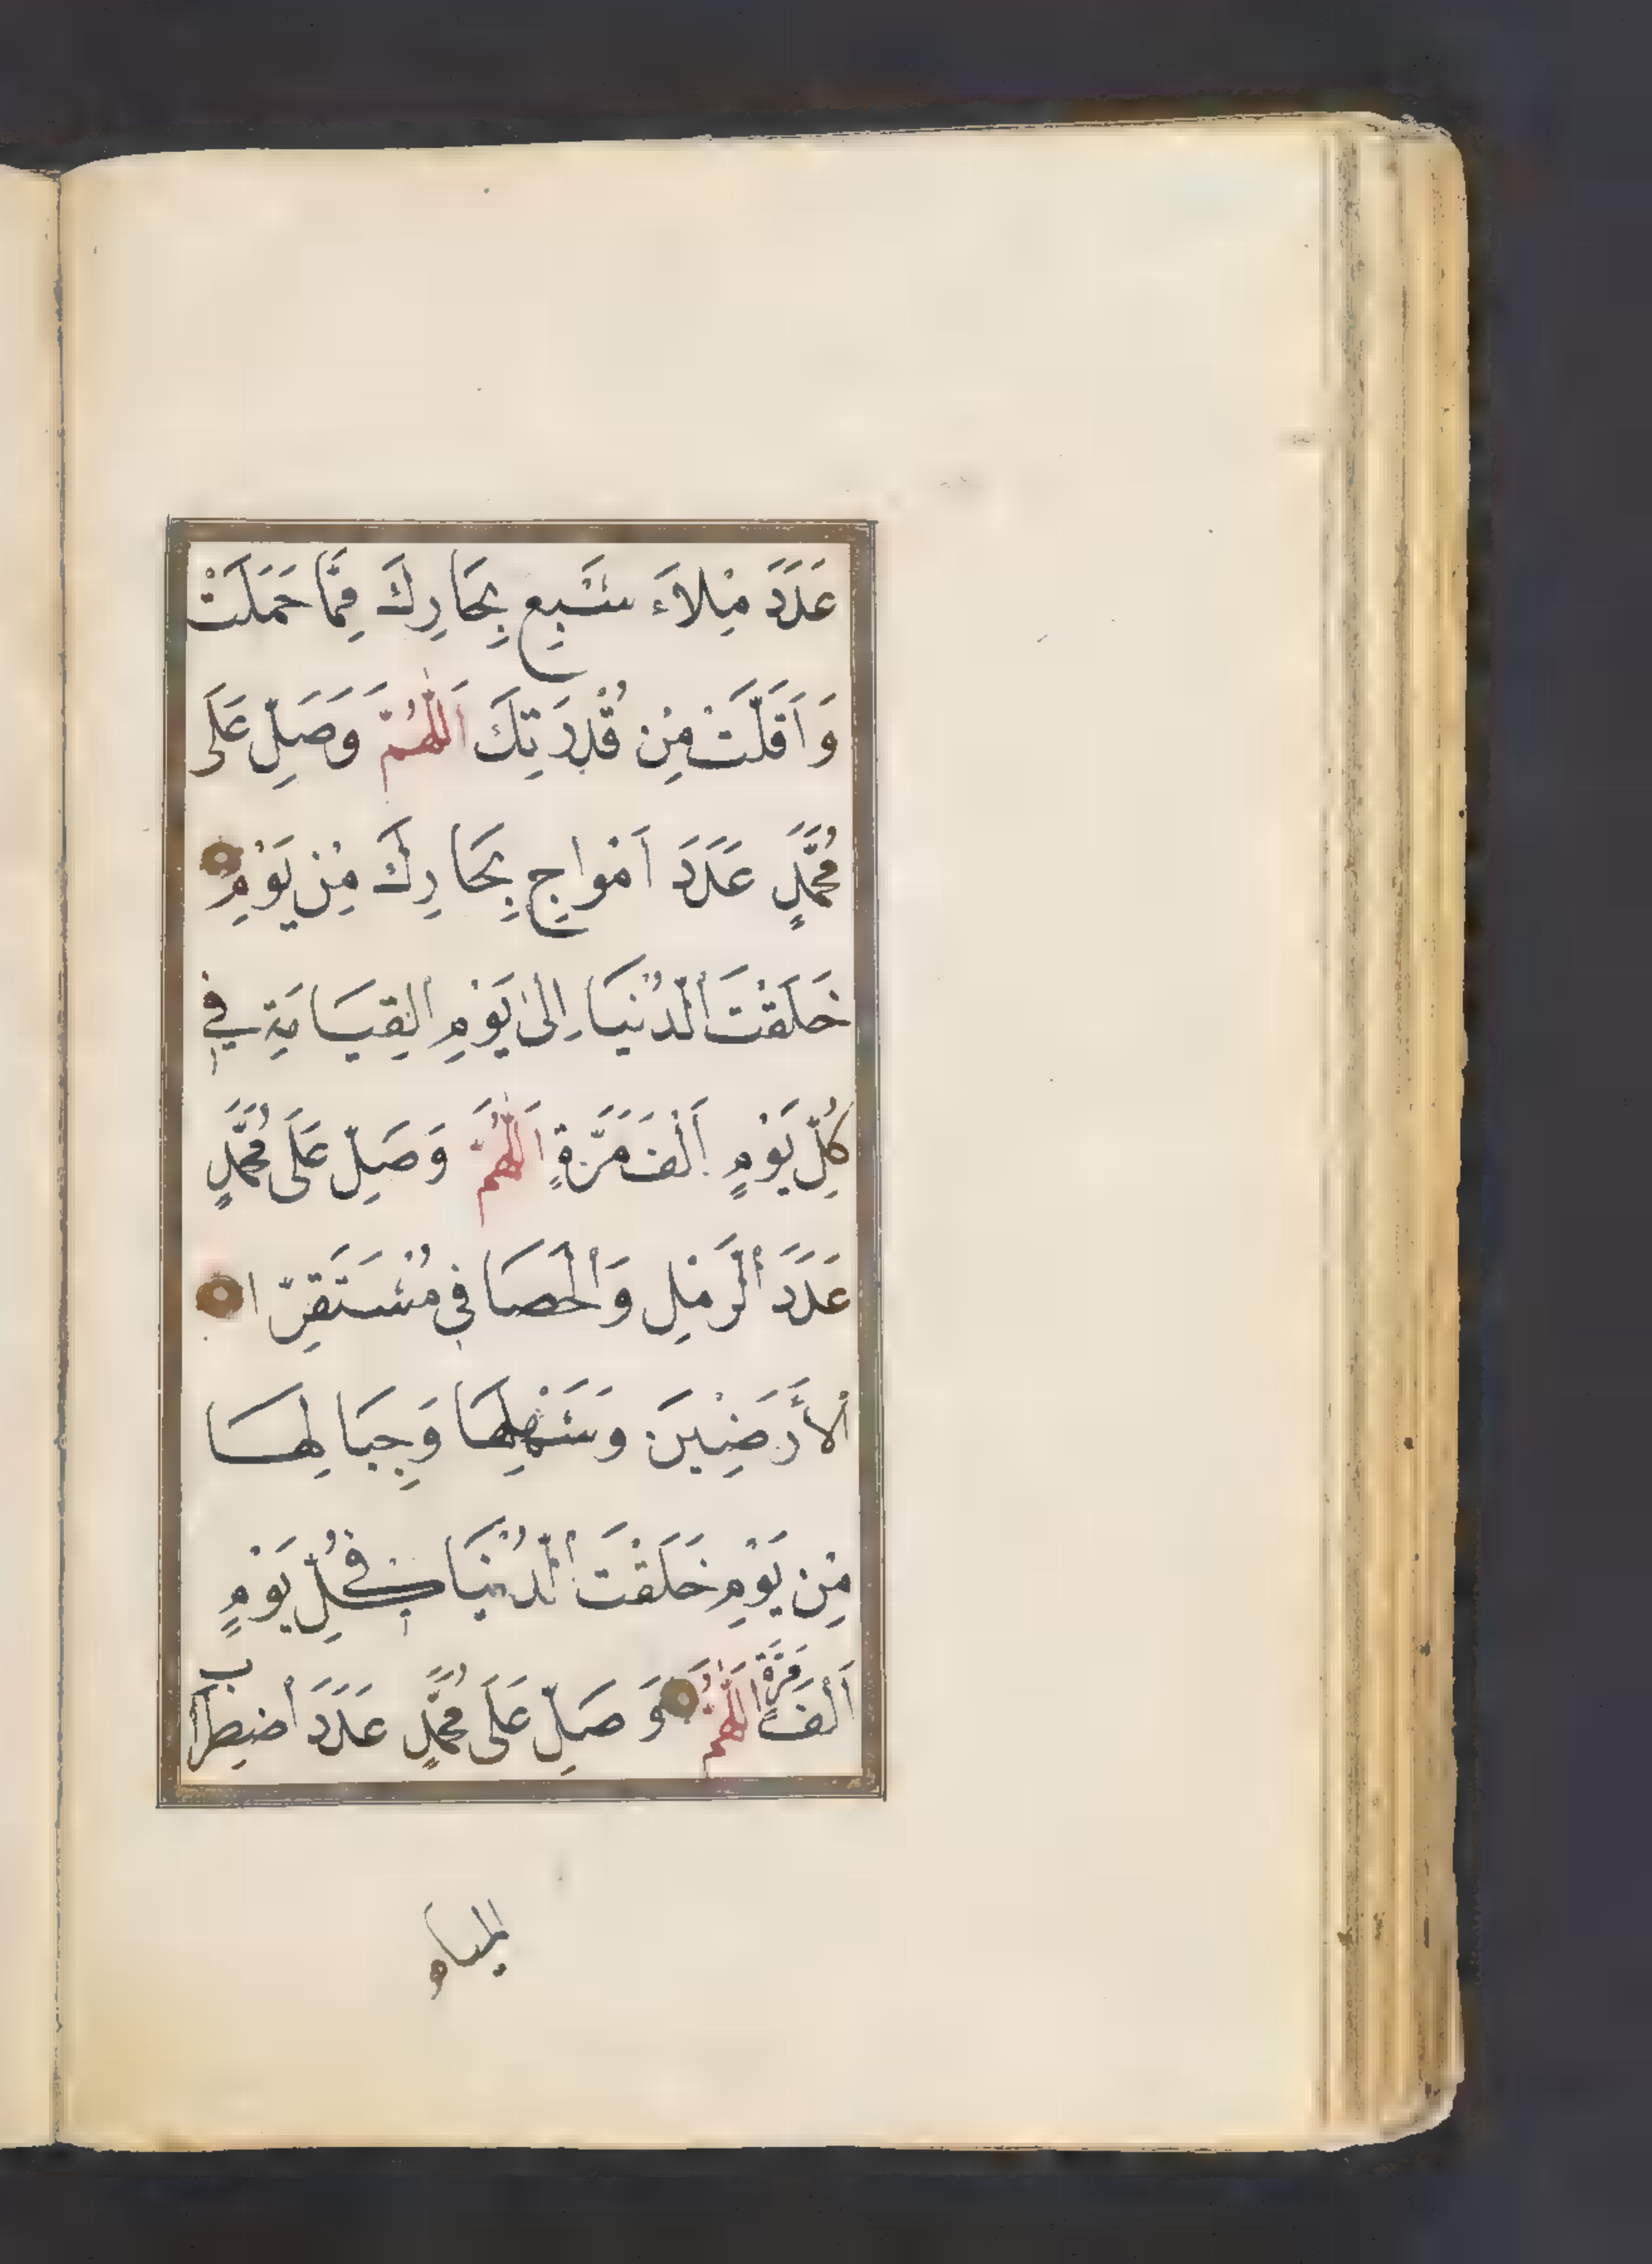 عَدَدَ مِلْاءَ سَبْعِ بِحَارِكَ مِمَّا حَمَلَتْ
وَاَقَلَّتْ مِنْ قُدْرَتِكَ اَللّٰهُمَّ وَصَلِّ عَلَى
مُحَمَّدٍ عَدَدَ اَمْوَاجِ بِحَارِكَ مِنْ يَوْمِ
خَلَقْتَ الدُّنْيَا اِلىٰ يَوْمِ الْقِيَامَةِ فِي
كُلِّ يَوْمٍ اَلْفَ مَرَّةٍ اَللّٰهُمَّ وَصَلِّ عَلَى مُحَمَّدٍ
عَدَدَ الرَّمْلِ وَالْحَصَا فِي مُسْتَقَرِّ
الْأَرَضِيْنَ وَسَهْلِهَا وَجِبَالِهَا
مِنْ يَوْمِ خَلَقْتَ الدُّنْيَا فِي كُلِّ يَوْمٍ
اَلْفَ مَرَّةٍ اَللّٰهُمَّ وَصَلِّ عَلَى مُحَمَّدٍ عَدَدَ اضْطِرَابِ
المياه